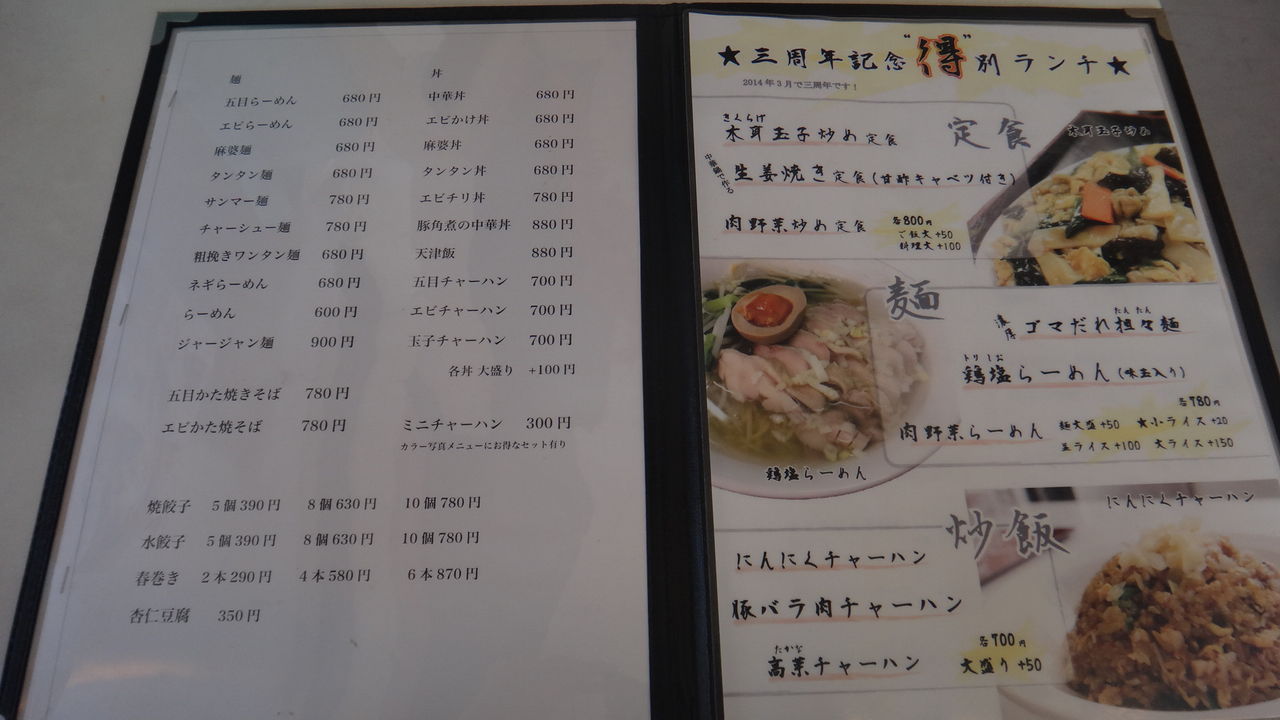 麺
五目らーめん 680円
エビらーめん 680円
麻婆麺 680円
タンタン麺 680円
サンマー麺 780円
チャーシュー麺 780円
粗挽きワンタン麺 680円
ネギらーめん 680円
らーめん 600円
ジャージャン麺 900円
五目かた焼きそば 780円
エビかた焼そば 780円
丼
中華丼 680円
エビかけ丼 680円
麻婆丼 680円
タンタン丼 680円
エビチリ丼 780円
豚角煮の中華丼 880円
天津飯 880円
五目チャーハン 700円
エビチャーハン 700円
玉子チャーハン 700円
各丼 大盛り +100円
ミニチャーハン 300円
カラー写真メニューにお得なセット有り
焼餃子 5個390円 8個630円 10個780円
水餃子 5個390円 8個630円 10個780円
春巻き 2本290円 4本580円 6本870円
杏仁豆腐 350円
★三周年記念“得”別ランチ★
2014年3月で三周年です！
定食
木耳玉子炒め
きくらげ
木耳玉子炒め定食
中華鍋で作る
生姜焼き定食(甘酢キャベツ付き)
肉野菜炒め定食
各800円
ご飯大+50
料理大+100
麺
濃厚
たんたん
ゴマだれ担々麺
トリしお
鶏塩らーめん(味玉入り)
各780円
肉野菜らーめん 麺大盛+50 ★小ライス+20
並ライス+100 大ライス+150
鶏塩らーめん
炒飯
にんにくチャーハン
にんにくチャーハン
豚バラ肉チャーハン
たかな
高菜チャーハン
各700円
大盛り+50